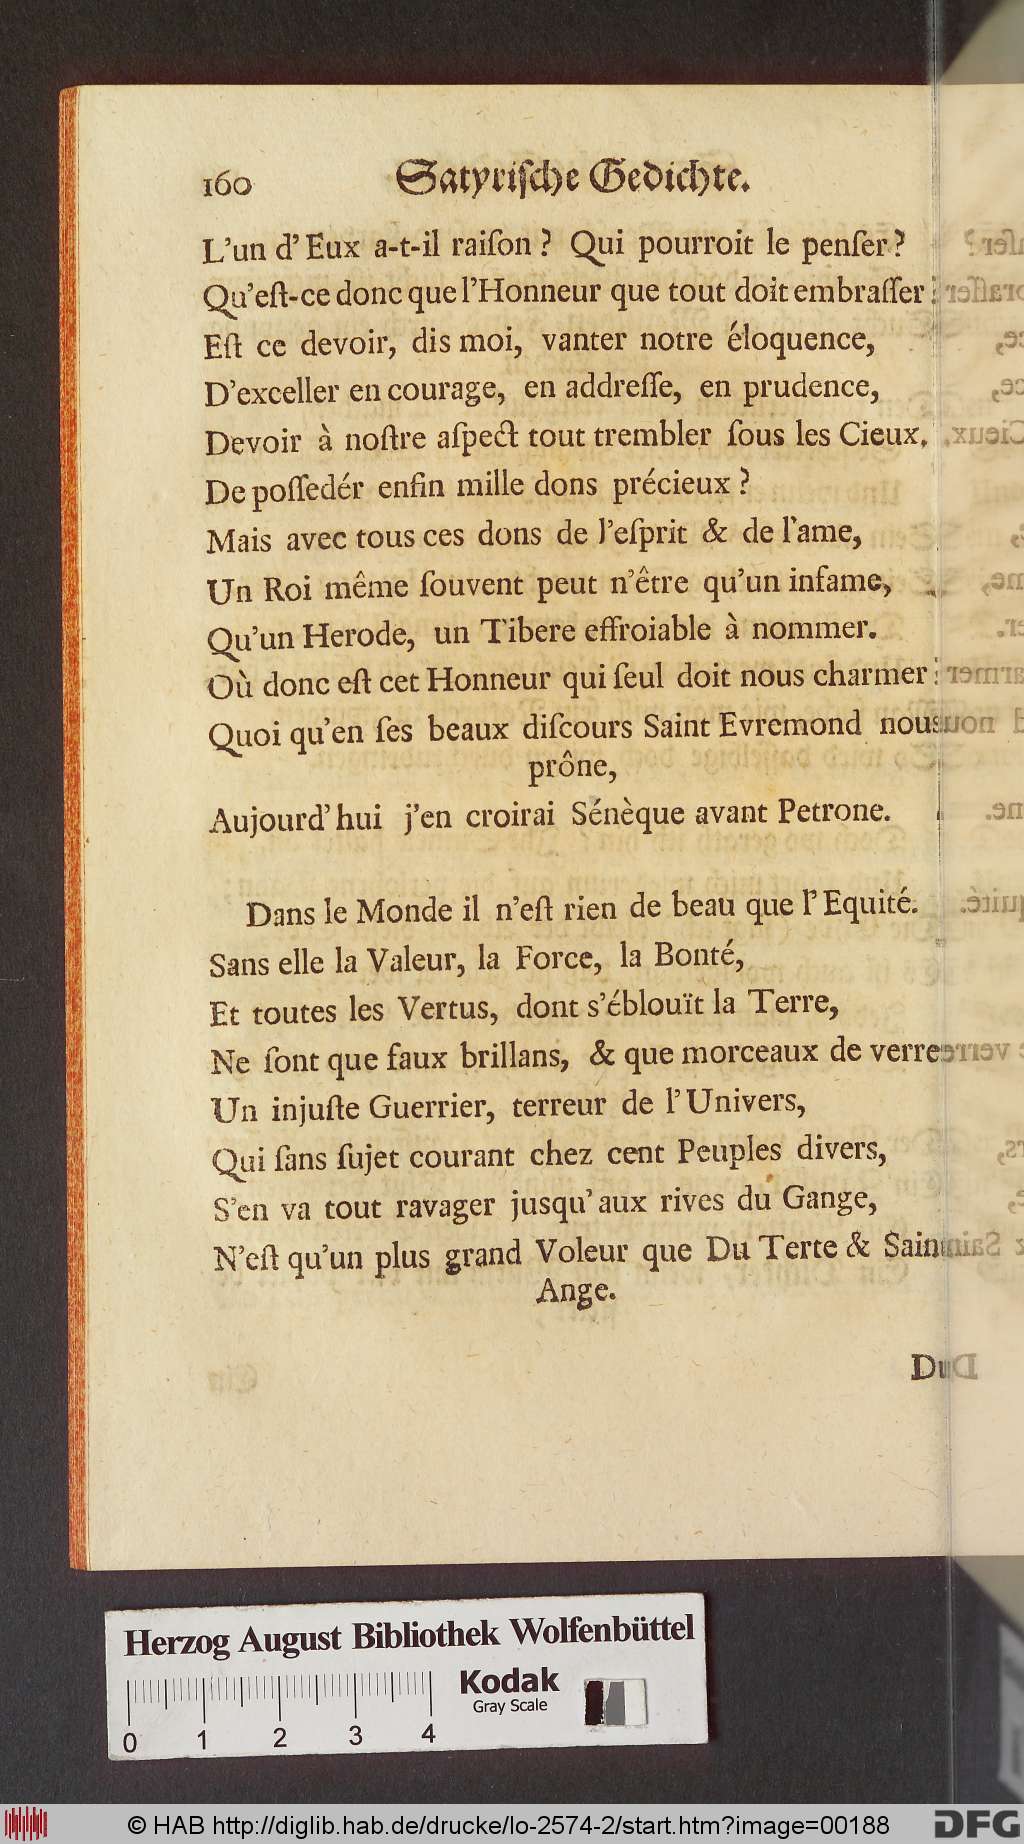 160 Satyriſche Gedichte.
L'un d'Eux a-t-il raiſon? Qui pourroit le penſer?
Qu'eſt-ce donc que l'Honneur que tout doit embraſſer
Eſt ce devoir, dis moi, vanter notre éloquence,
D'exceller en courage, en addreſſe, en prudence,
Devoir à noſtre aſpect tout trembler ſous les Cieux,
De poſſedér enfin mille dons précieux?
Mais avec tous ces dons de l'eſprit & de l'ame,
Un Roi même ſouvent peut n'être qu'un infame,
Qu'un Herode, un Tibere effroiable à nommer.
Où donc eſt cet Honneur qui ſeul doit nous charmer
Quoi qu'en ſes beaux diſcours Saint Evremond nous
prône,
Aujourd'hui j'en croirai Sénèque avant Petrone.
Dans le Monde il n'eſt rien de beau que l'Equité.
Sans elle la Valeur, la Force, la Bonté,
Et toutes les Vertus, dont s'éblouït la Terre,
Ne ſont que faux brillans, & que morceaux de verre
Un injuſte Guerrier, terreur de l'Univers,
Qui ſans ſujet courant chez cent Peuples divers,
S'en va tout ravager jusqu'aux rives du Gange,
N'eſt qu'un plus grand Voleur que Du Terte & Saint
Ange.
Du
Herzog August Bibliothek Wolfenbüttel
Kodak
Gray Scale
0 1 2 3 4
© HAB http://diglib.hab.de/drucke/lo-2574-2/start.htm?image=00188
DFG